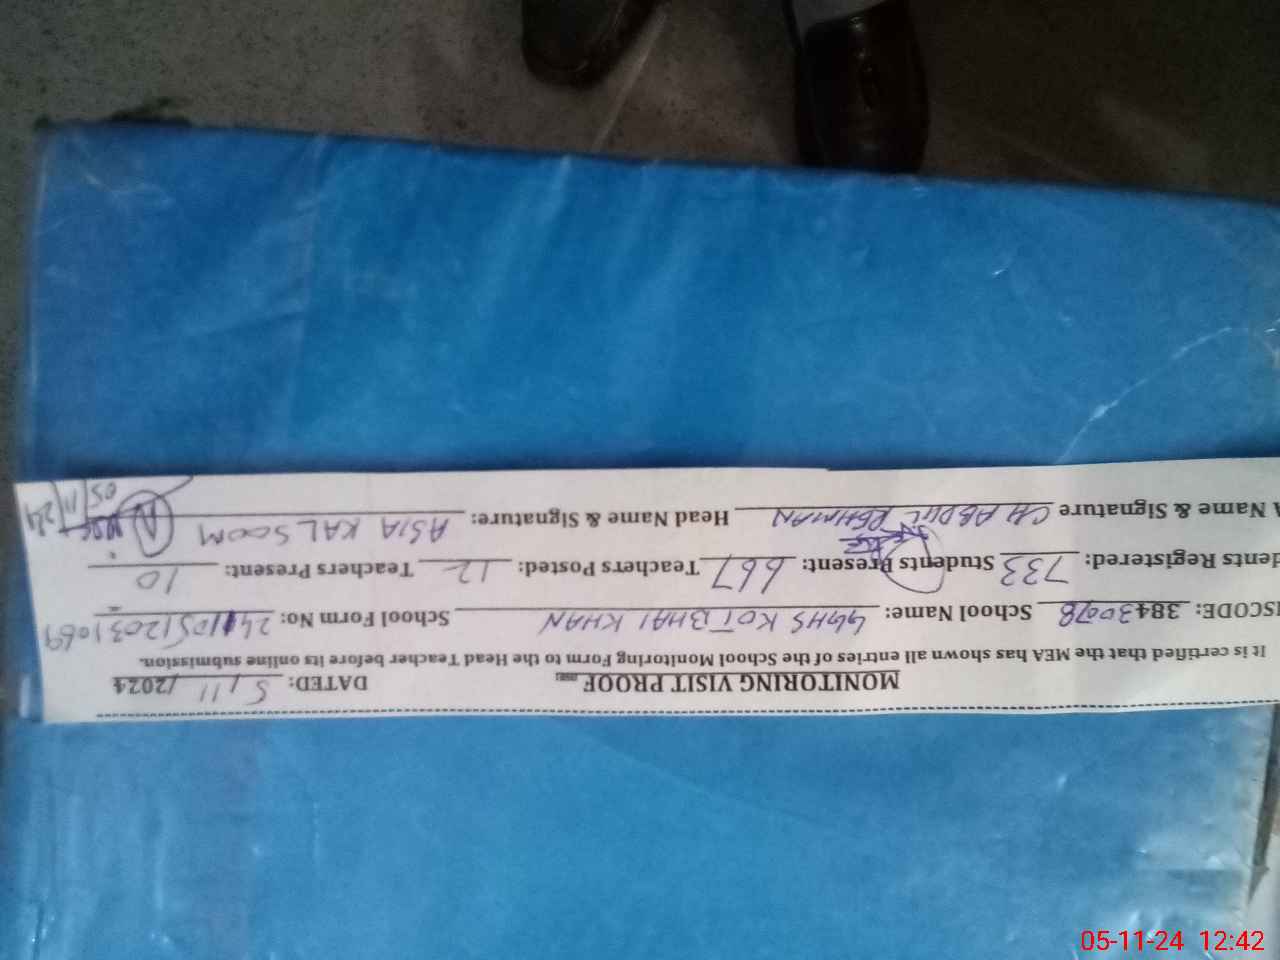 MONITORING VISIT PROOF DATED: 5/11/2024
It is certified that the MEA has shown all entries of the School Monitoring Form to the Head Teacher before its online submission.
ISCODE: 38430078 School Name: GGHS KOT BHAI KHAN School Form No:
dents Registered: 733 Students Present: 667 Teachers Posted: 12 Teachers Present: 10
A Name & Signature CH ABDUL REHMAN Head Name & Signature: ASIA KALSOOM
05/11/24
05-11-24 12:42